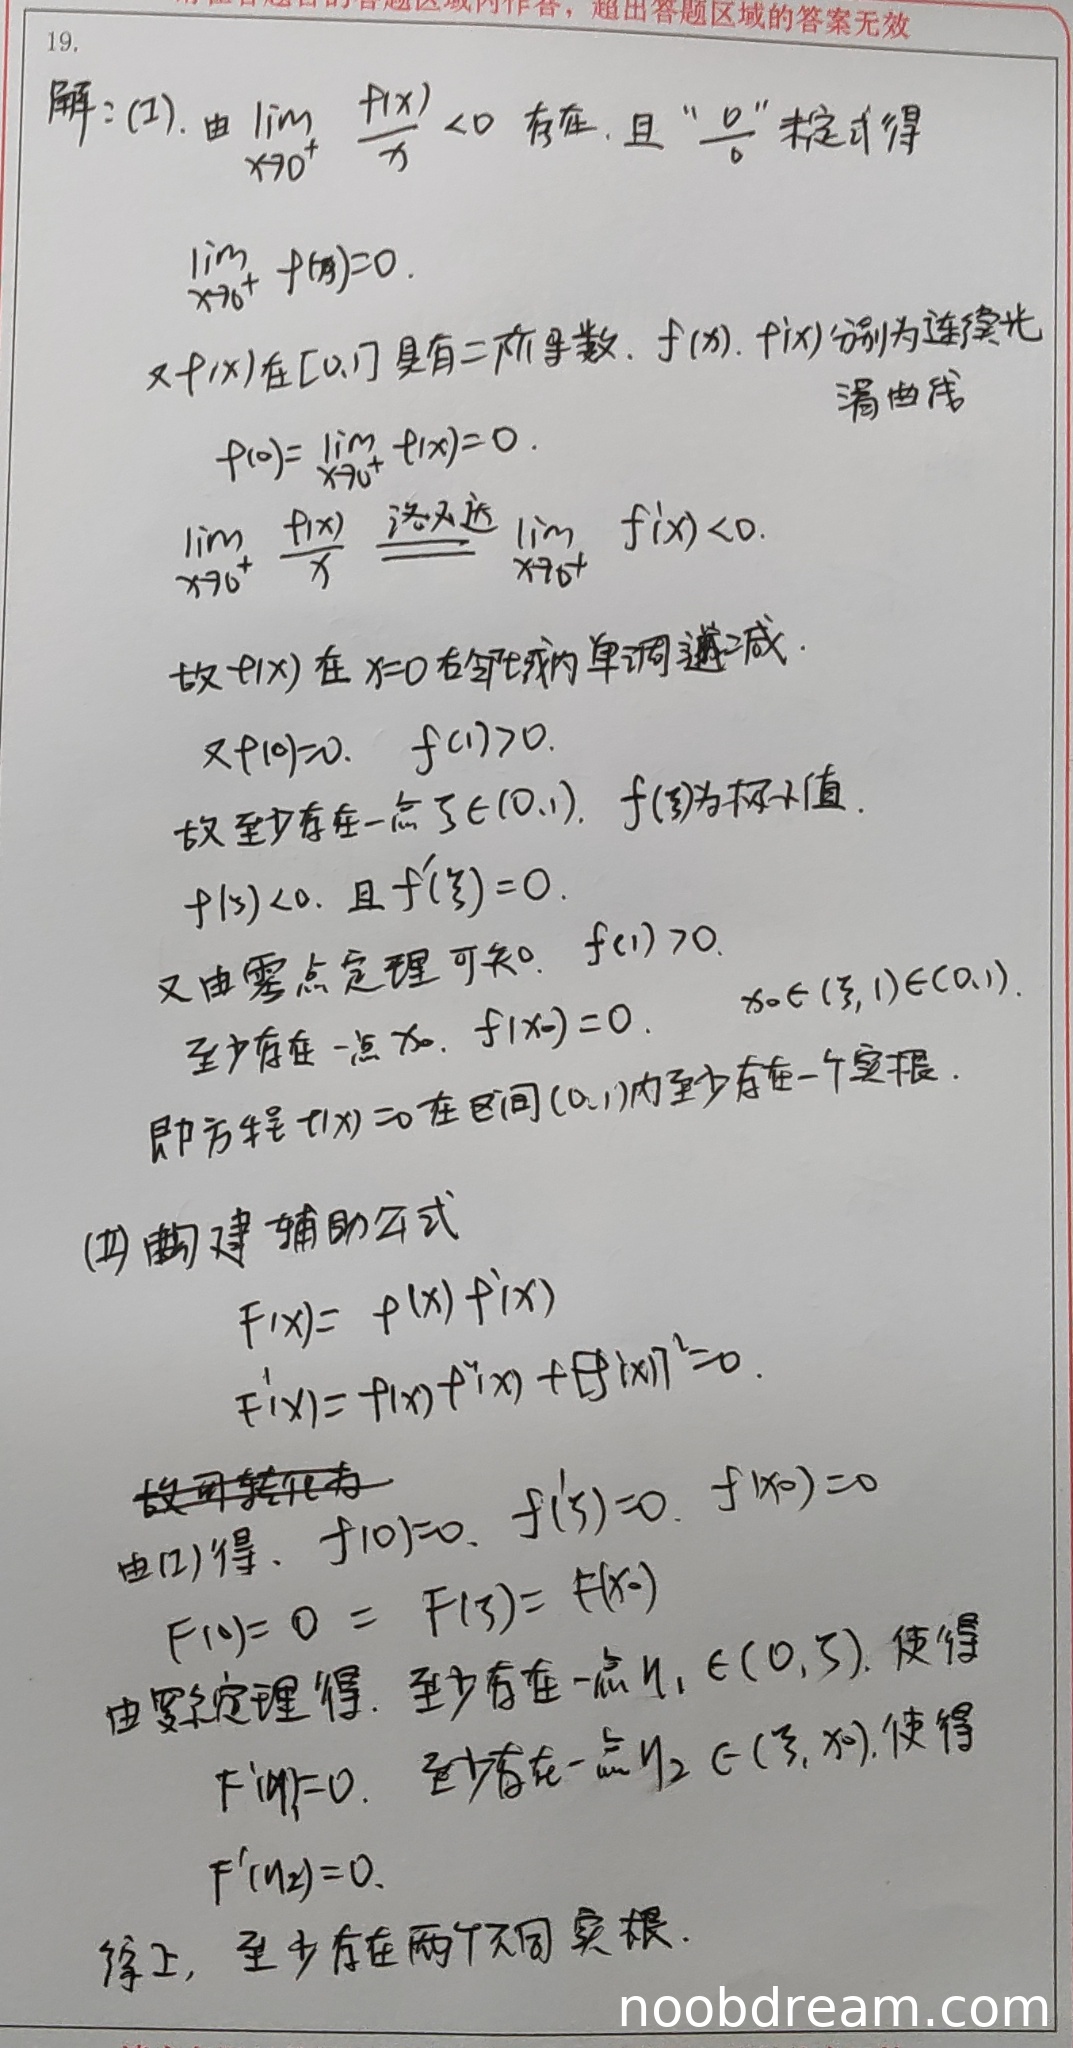 请在各题目的答题区域内作答，超出答题区域的答案无效
19.
解：(I). 由 lim x→0⁺ f(x)/x <0 存在. 且 "0/0" 未定式得
lim x→0⁺ f(x)=0.
又f(x)在[0,1]具有二阶导数. f(x). f'(x)分别为连续光
滑曲线
f(0)= lim x→0⁺ f(x)=0.
lim x→0⁺ f(x)/x 洛必达 lim x→0⁺ f'(x)<0.
故f(x)在 x=0右邻域内单调递减.
又f(0)=0. f(1)>0.
故至少存在一点ξ∈(0,1). f(ξ)为极小值.
f(ξ)<0. 且f'(ξ)=0.
又由零点定理可知. f(1)>0.
至少存在一点x₀. f(x₀)=0. x₀∈(ξ,1)∈(0,1).
即方程f(x)=0在区间(0,1)内至少存在一个实根.
(II)构建辅助公式
F(x)= f(x)f'(x)
F'(x)=f(x)f''(x)+[f'(x)]²=0.
故可转化为
由(I)得. f(0)=0. f'(ξ)=0. f(x₀)=0
F(0)= 0 = F(ξ)= F(x₀)
由罗尔定理得. 至少存在一点η₁∈(0,ξ). 使得
F'(η₁)=0. 至少存在一点η₂∈(ξ,x₀).使得
F'(η₂)=0.
综上, 至少存在两个不同实根.
noobdream.com